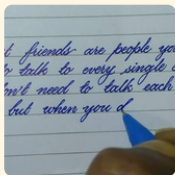 t friends are people yo
to talk to every single
on't need to talk each
but when you d